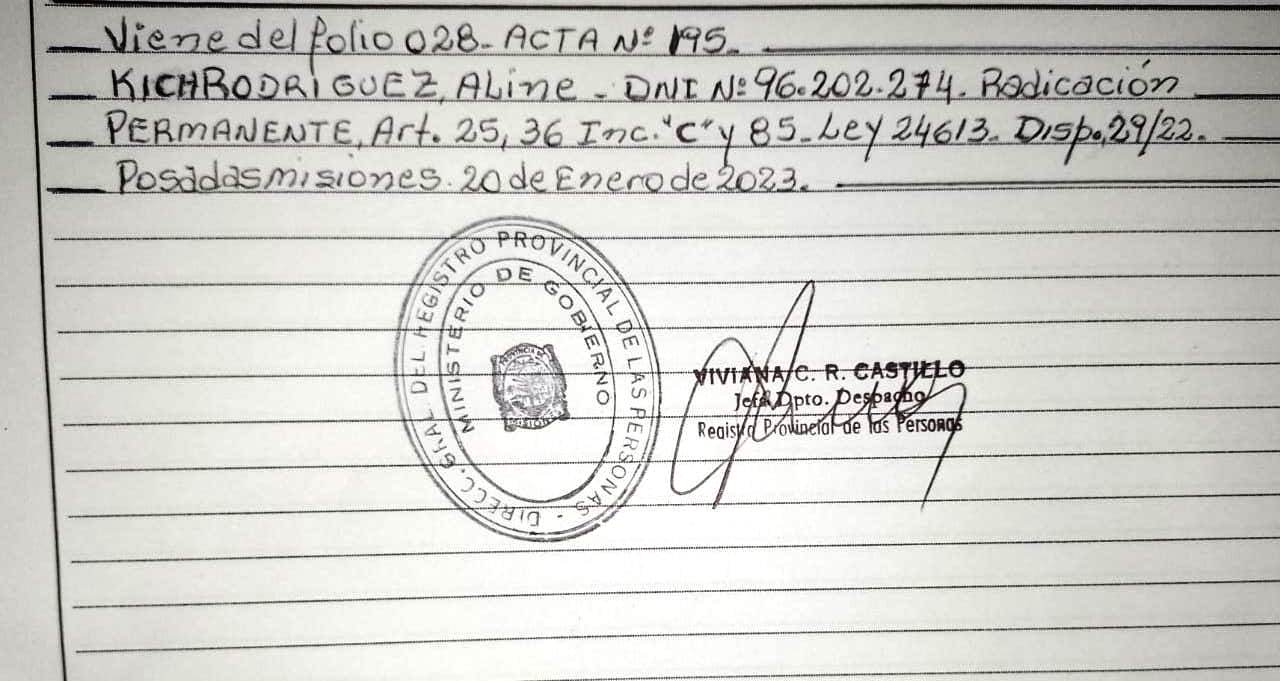 Viene del folio 028- ACTA Nº 195.
KICH RODRIGUEZ, ALine - DNI Nº 96.202.274. Radicación
PERMANENTE, Art. 25, 36 Inc. "C" y 85. Ley 24613. Disp. 29/22.
Posadas misiones. 20 de Enero de 2023.
DIRECC. GRAL. DEL REGISTRO PROVINCIAL DE LAS PERSONAS -
MINISTERIO DE GOBIERNO
VIVIANA C. R. CASTILLO
Jefa Dpto. Despacho
Registro Provincial de las Personas